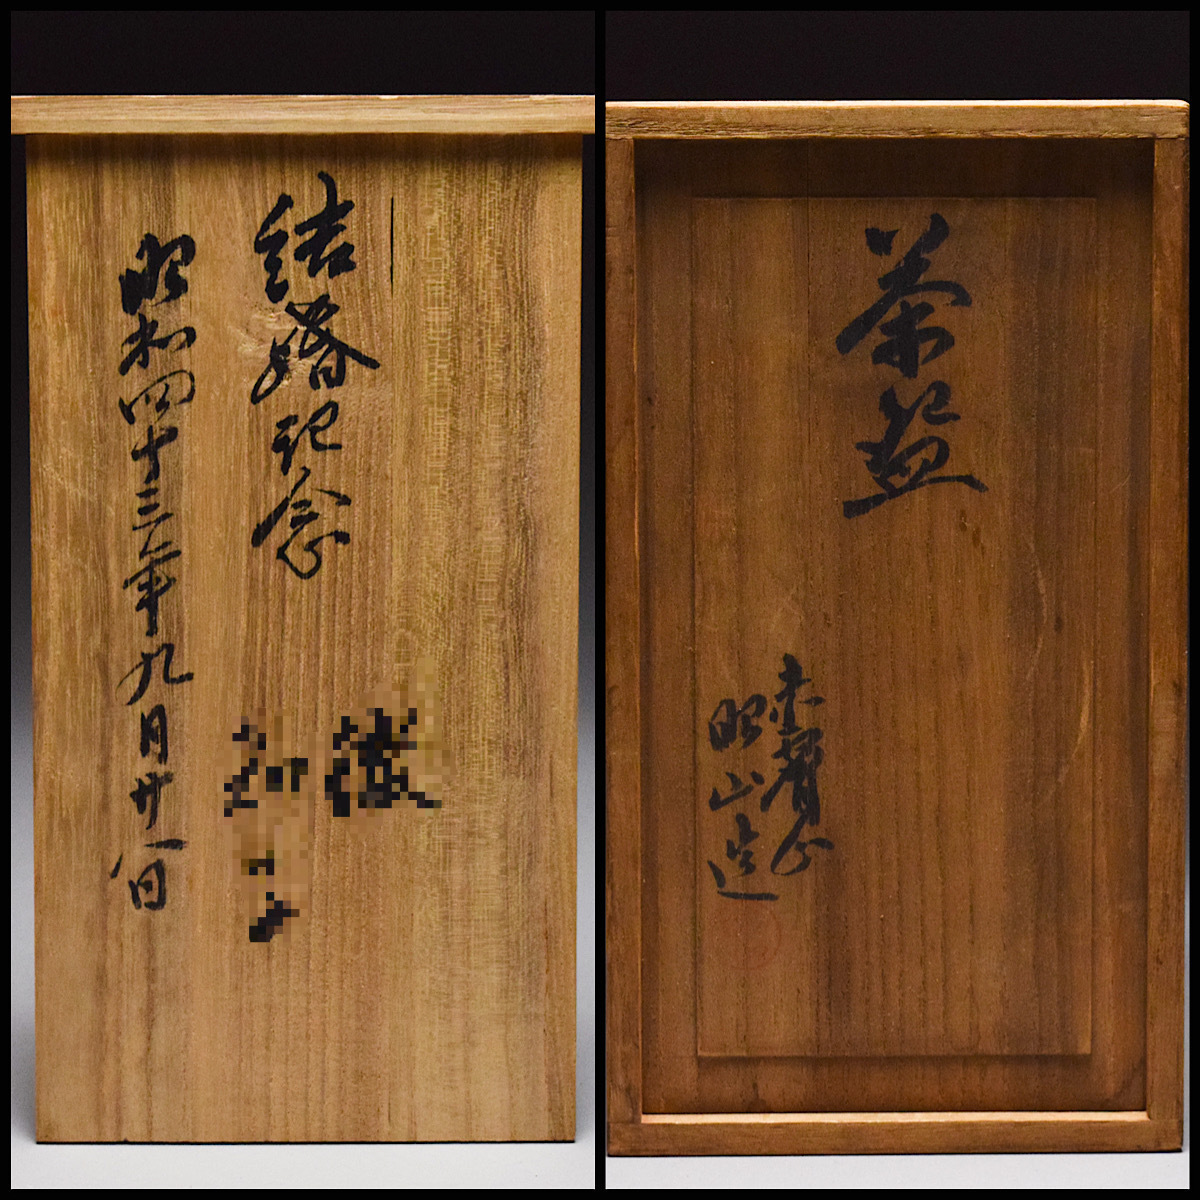 結婚記念
昭和四十三年九月廿一日
茶盌
赤膚山
昭山造